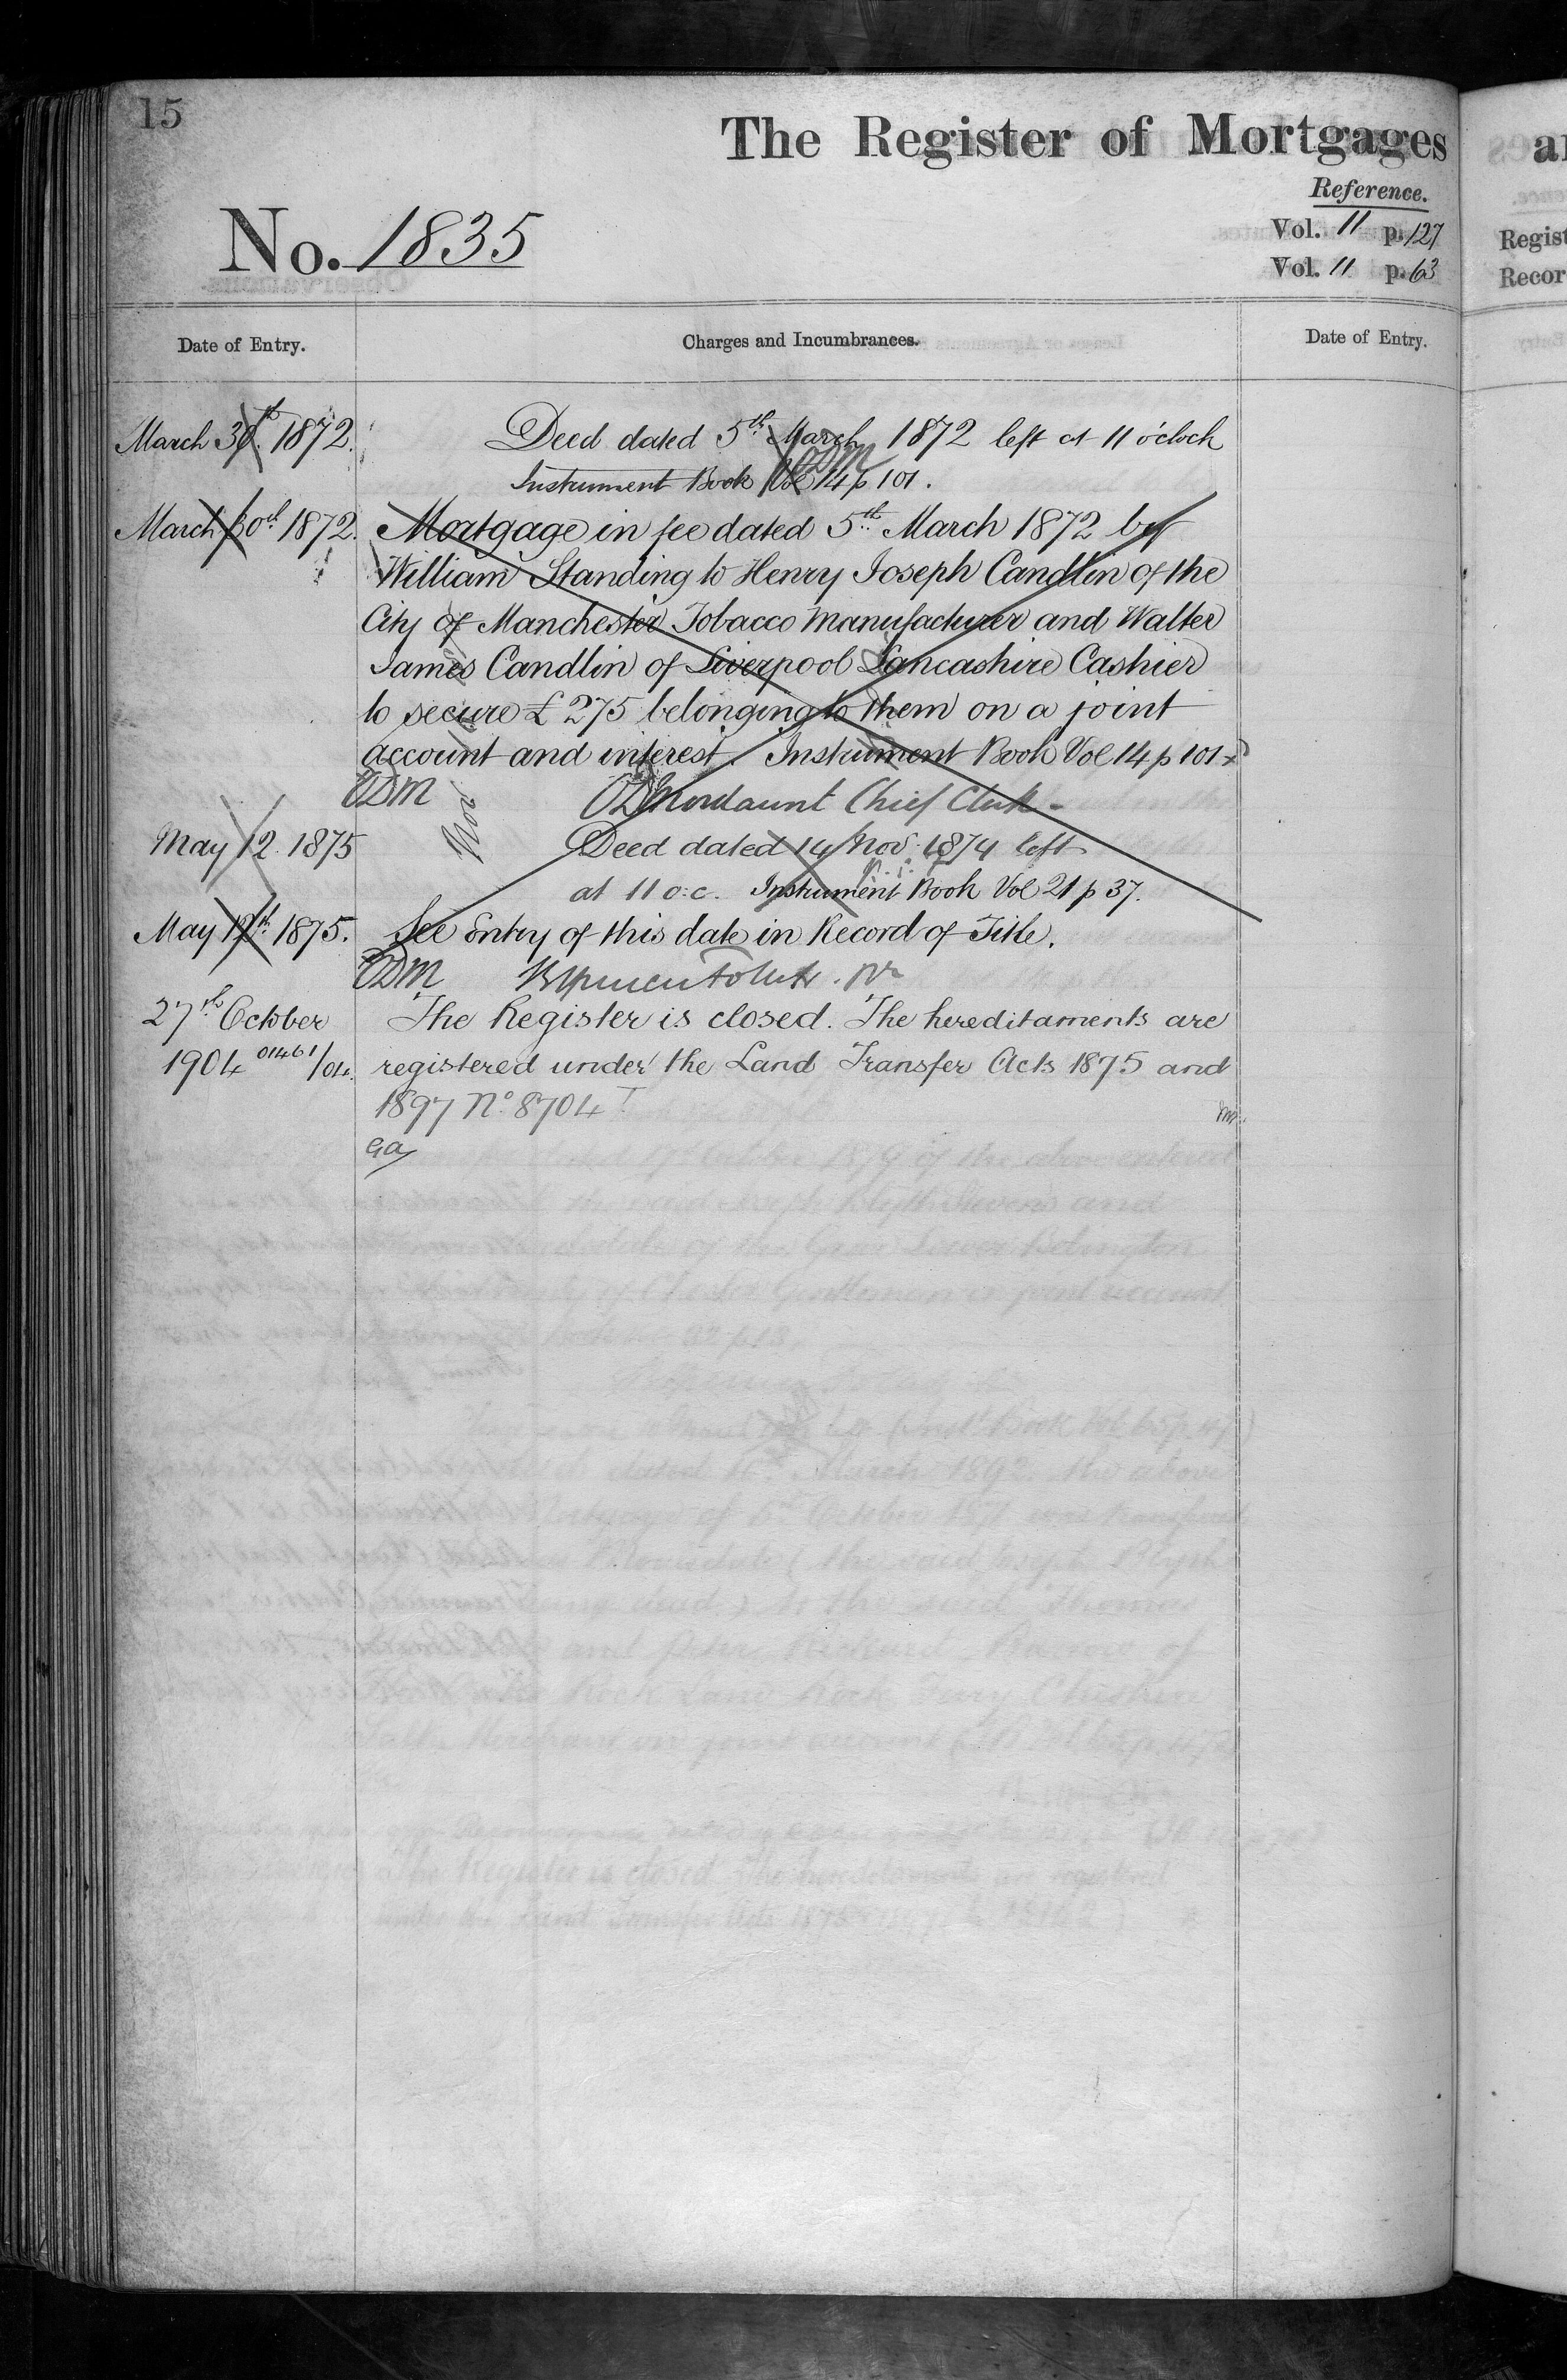 15
The Register of Mortgages
Reference.
No. 1835
Vol. 11 p. 127
Vol. 11 p. 63
Regist
Recor
Date of Entry.
Charges and Incumbrances.
Date of Entry.
March 30th 1872.
Deed dated 5th March 1872 left at 11 o'clock
ODM
Instrument Book Vol 14 p 101.
March 30th 1872.
Mortgage in fee dated 5th March 1872 by
William Standing to Henry Joseph Candlin of the
City of Manchester Tobacco Manufacturer and Walter
James Candlin of Liverpool Lancashire Cashier
to secure £275 belonging to them on a joint
account and interest. Instrument Book Vol 14 p 101
ODM
ODMordaunt Chief Clerk
May 12 1875
Deed dated 14 Nov. 1874 left
at 11 o.c. Instrument Book Vol 21 p 37.
May 12th 1875.
See Entry of this date in Record of Title.
ODM
27th October
1904 01461/04.
The Register is closed. The hereditaments are
registered under the Land Transfer Acts 1875 and
1897 No. 8704